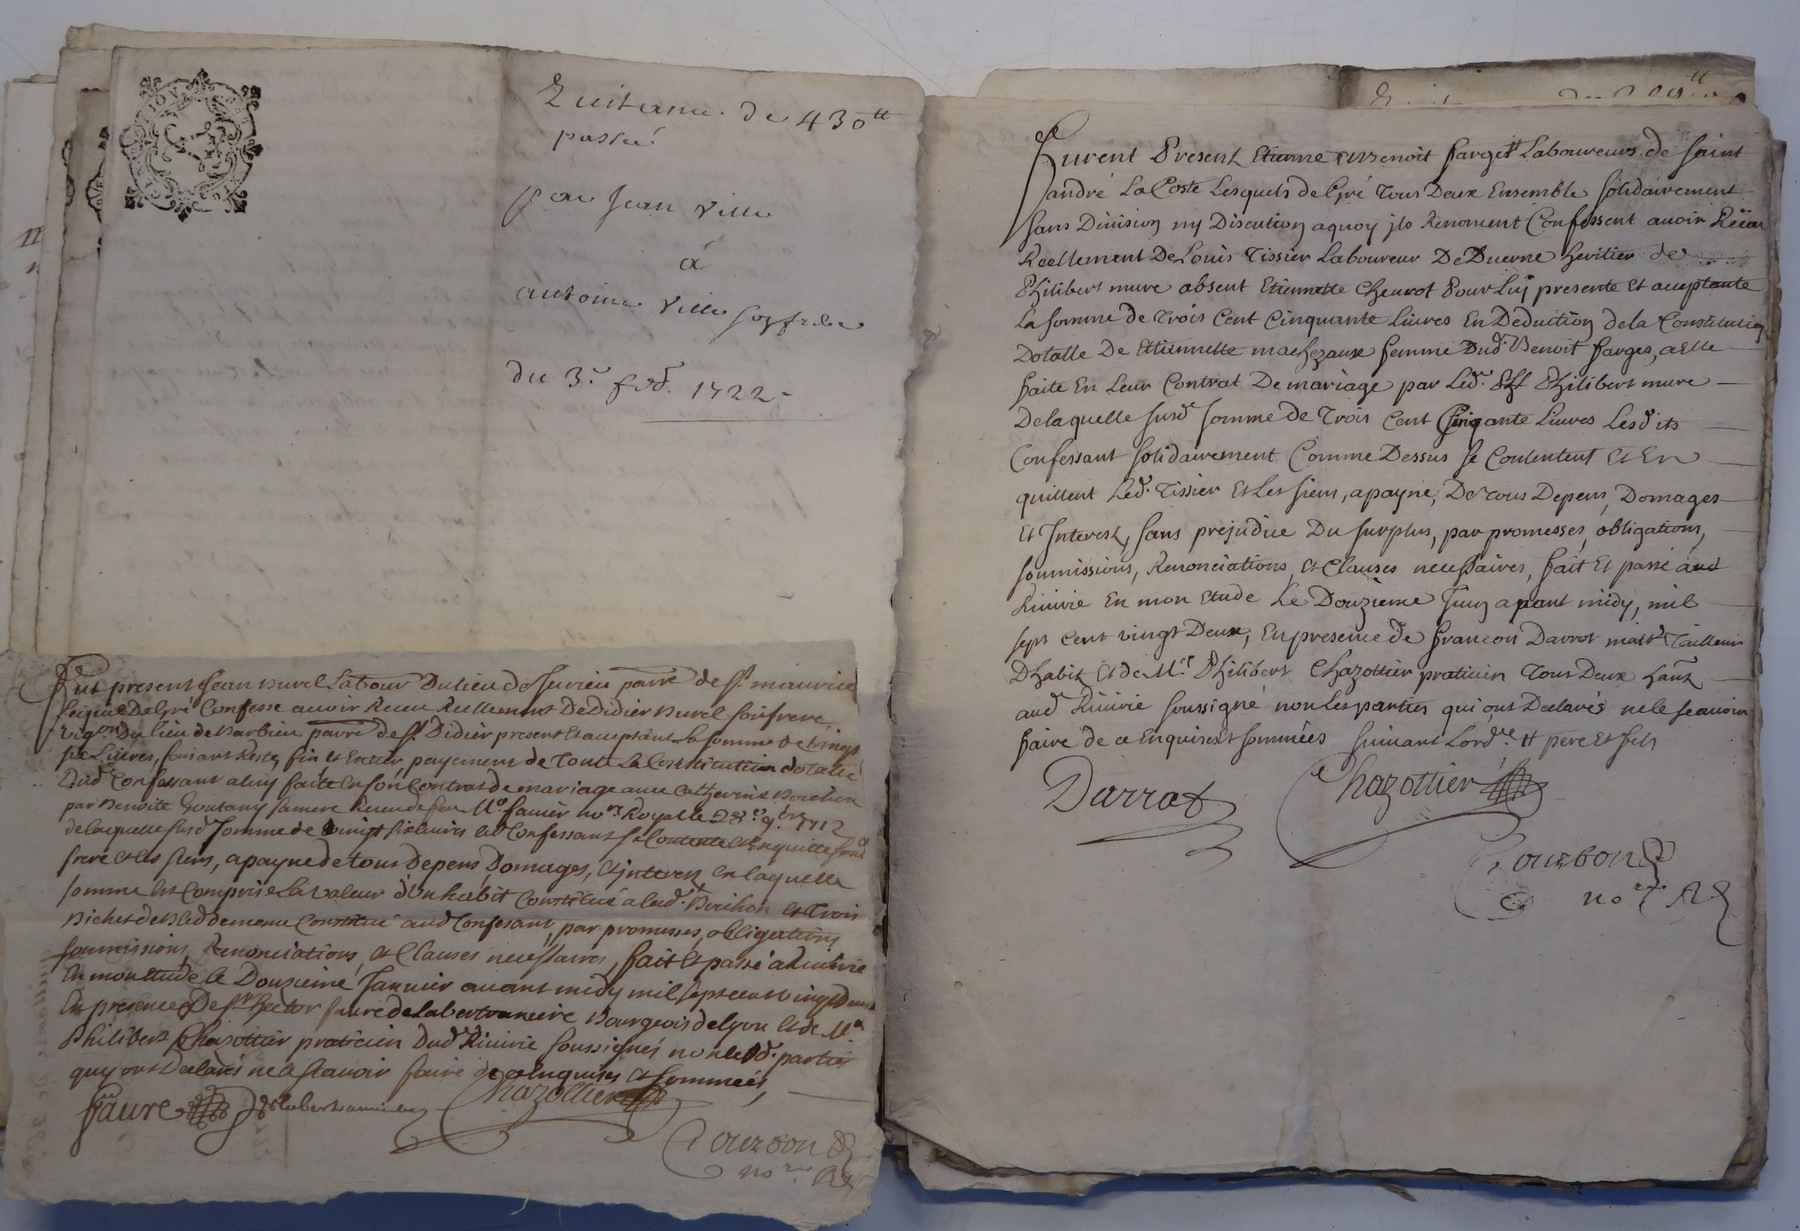 Quitance de 430tt
passé
par Jean Ville
á
antoine Ville son frere
du 3e fevr. 1722 -
Fut present Jean Burel Labour Du lieu de parre de St. maurice
Lequel De Gré Confesse avoir Receu Reellement De Didier Burel son frere
Vigon Du lieu de Barbieu parre de St. Didier present et acceptant La somme de vingt
six Livres, faisant Reste, fin et Entier payement de Toute La Constitution dotalle
Dud. Confessant a luy faite En son Contrat de mariage avec Catherine Bouchon
par Benoite Goutany sa mere Receu de feu Me. favier nore Royal le 28e 9bre 1712
de laquelle susd. somme de vingt six livres led Confessant se Contente et En quitte sond
frere et les siens, a payne de tous Depens Domages, et interest en laquelle
somme est Comprise La valeur d'un habit Constitué a lad. Bouchon et Trois
Bichets de Bled de meme Constitué aud Confessant, par promesses, obligations
soumissions, Renonciations, et Clauses necessaires, fait et passé a Riuirie
En mon etude le Douzieme Januier auant midy mil sept cent vingt deux
En presence De Sr. hector faure de labertranniere Bourgeois de Lyon et de Me.
Philibert Chazottier praticien Dud Riuirie soussignés non lesd. parties
quy ont Declarés ne le scavoir faire de ce Enquises et sommées,
faure
Chazottier
Courbon
nore R
Furent Present Etienne et Benoit farget Laboureurs de saint
andré La Coste Lesquels de Gré Tous Deux Ensemble solidairement
sans Division ny Discution aquoy jls Renoncent Confessent auoir Reçeu
Reellement De Loüis Tissier Laboureur De Duerne heritier de
Philibert mure absent Etiennette Cheurot Pour Luy presente et acceptante
La somme de Trois Cent Cinquante Liures En Deduction dela Constitution
Dotalle De Etiennette machezaux femme Dud. Benoit farges, a Elle
faite En Leur Contrat De mariage par Led. Philibert mure
De la quelle susd somme de Trois Cent Cinqante Liures Lesdits
Confessant solidairement Comme Dessus se Contentent et En
quittent Led. Tissier et Les siens, a payne, De tous Depens, Domages
et Interest, sans prejudice Du surplus, par promesses, obligations,
soumissions, Renonciations, et Clauses necessaires, fait et passé aud
Riuirie En mon etude Le Douzieme Juin auant midy, mil
sept cent vingt Deux, En presence de francois Darrot maitre Tailleur
Dhabit et de Mre. Philibert Chazottier praticien Tous Deux
aud Riuirie soussigné non Les parties qui ont Declarés ne le scauoir
faire de ce Enquises et sommées suiuant Lordce tt pere et fils
Darrot
Chazottier
Courbon
nore R